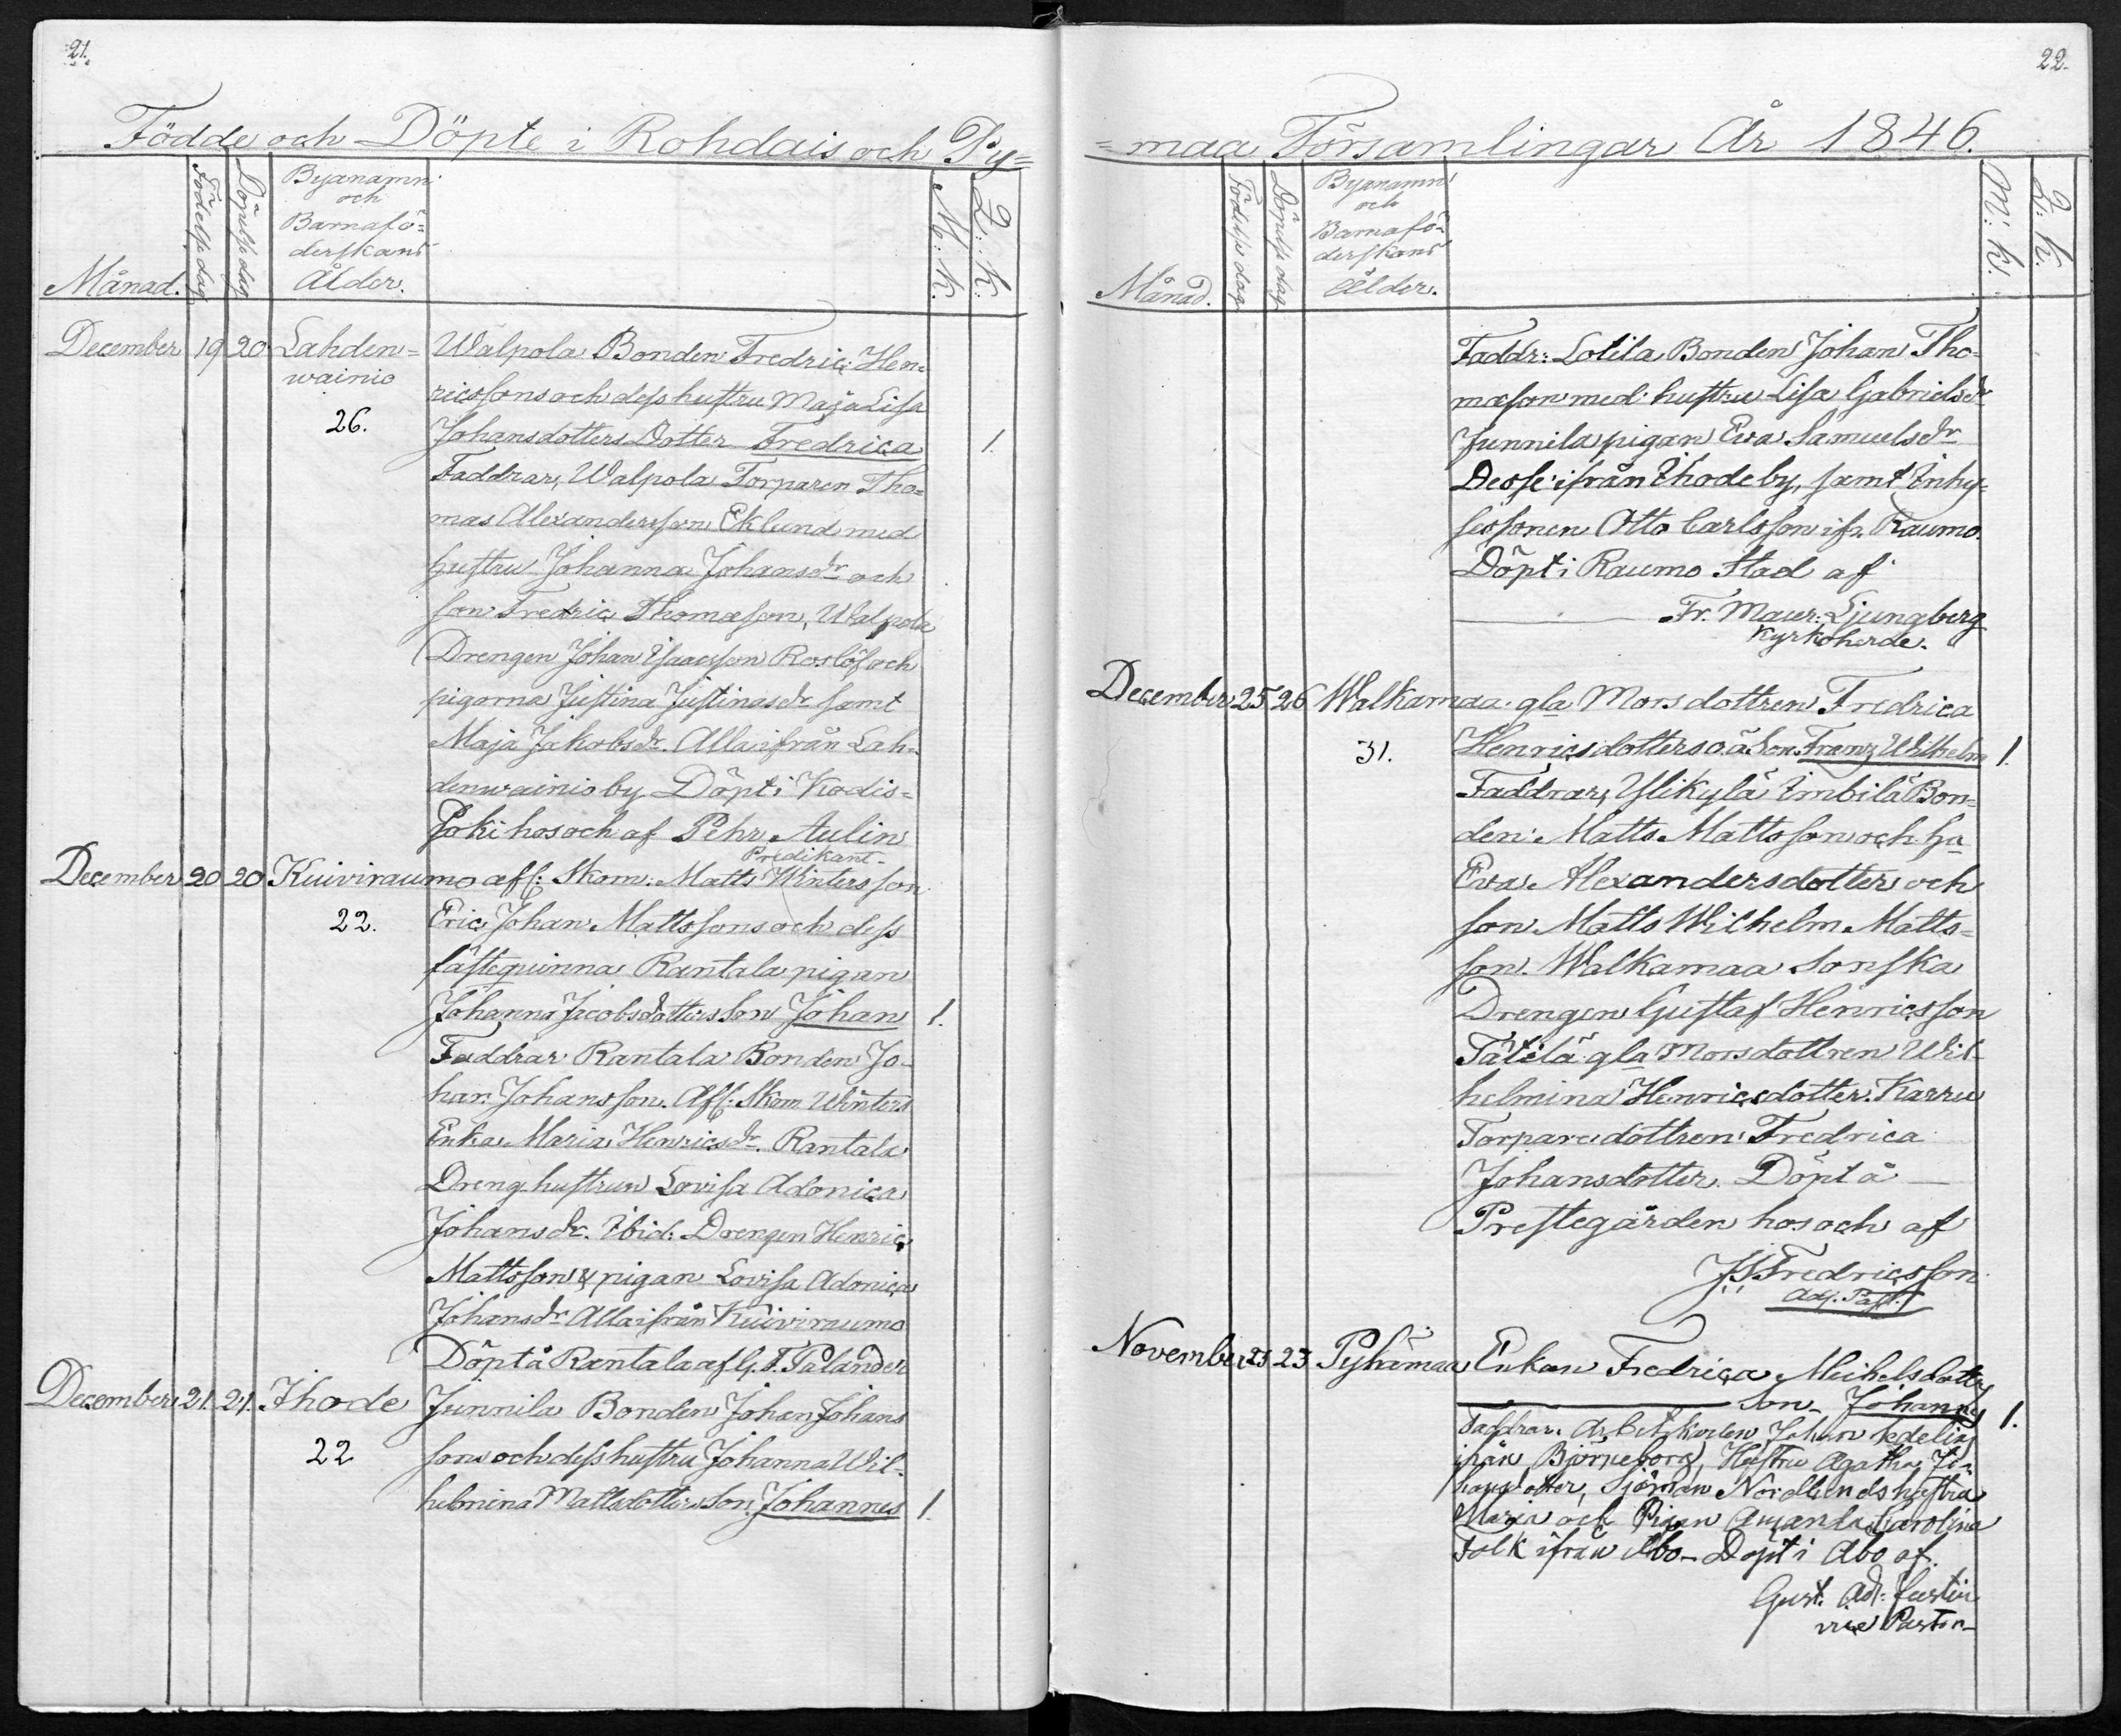 21.
Födde och Döpte i Rohdais och Py=
Månad.
Födelse dag
Döpelse dag
Byanamn
och
Barnafö=
derskans
Ålder.
M: k.
Q: k.
December 19 20 Lahden= Walpola Bonden Fredric Hen=
wainio ricssons och dess hustru Maja Lisa
26. Johansdotters Dotter Fredrica 1
Faddrar, Walpola Torparen Tho=
mas Alexandersson Eklund med
hustru Johanna Johansdr och
son Fredric Thomasson, Walpola
Drengen Johan Isaacsson Roslöf och
pigorna Justina Justinasdr samt
Maja Jakobsdr. Alla ifrån Lah=
denwainio by Döpt i Kodis=
joki hos och af Pehr Aulin
Predikant.
December 20 20 Kuiviraumo aff: Skom: Matts Winters son
22. Eric Johan Mattssons och dess
fästequinna Rantala pigan
Johanna Jacobsdotters Son Johan 1.
Faddrar Rantala Bonden Jo=
han Johansson. Aff: Skom Winters
Enka Maria Henricsdr. Rantala
Dreng hustrun Lovisa Adonica
Johansdr. Ibid: Drengen Henric
Mattsson & pigan Lovisa Adonica
Johansdr Alla ifrån Kuiviraumo
Döpt å Rantala af G. F. Palander
December 21. 21. Ihode Junnila Bonden Johan Johans
22 sons och dess hustru Johanna Wil=
helmina Mattsdotters Son Johannes 1
22.
=maa Församlingar År 1846.
Månad.
Födelse dag
Döpelse dag
Byanamn
och
Barnafö=
derskans
Ålder.
M: k.
Q: k.
Faddr: Lolila Bonden Johan Tho=
masson med hustru Lisa Gabrielsdr
Junnila pigan Eva Samuelsdr
Desse ifrån Ihode by, samt Inhy=
sessonen Otto Carlsson ifr. Raumo.
Döpt i Raumo Stad af
Fr. Maur: Ljungberg
Kyrkoherde.
December 25 26 Walkamaa gla Morsdottren Fredrica
31. Henricsdotters o.ä. Son Franz Wilhelm 1.
Faddrar, Ylikylä Imbilä Bon=
den Matts Mattsson och hu
Eva Alexandersdotter och
son Matts Wilhelm Matts=
son. Walkamaa Sonska
Drengen Gustaf Henricsson
Tätilä gla Morsdottren Wil=
helmina Henricsdotter. Karru
Torparedottren Fredrica
Johansdotter. Döpt å
Prestegården hos och af
J. J. Fredricsson
Adj. Past.
November 23 23 Pyhämaa Enkan Fredrica Michelsdotters
Son Johannes 1.
Faddrar. Arbetskarlen Johan
ifrån Björneborg, Hustru Agatha Jo=
hansdotter, Sjöman Nordlunds hustru
Maria och Pigan Amanda Carolina
Falk ifrån Åbo. Döpt i Åbo af.
Gust. Ad:
vice Pastor